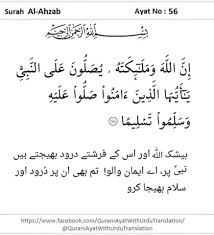 Surah Al-Ahzab Ayat No : 56
بِسْمِ اللَّهِ الرَّحْمَٰنِ الرَّحِيمِ
إِنَّ اللَّهَ وَمَلَٰٓئِكَتَهُۥ يُصَلُّونَ عَلَى النَّبِيِّ
يَٰٓأَيُّهَا الَّذِينَ ءَامَنُوا۟ صَلُّوا۟ عَلَيْهِ
وَسَلِّمُوا۟ تَسْلِيمًا ۝٥٦
بیشک اللہ اور اس کے فرشتے درود بھیجتے ہیں
نبیؐ پر، اے ایمان والو! تم بھی ان پر درود اور
سلام بھیجا کرو
https://www.facebook.com/QuraniAyatWithUrduTranslation/
@QuraniAyatWithUrduTranslation